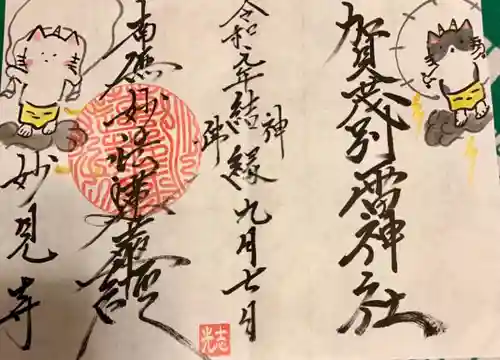 賀茂別雷神社
神
令和元年結縁九月七日
南無妙法蓮華経
妙見寺